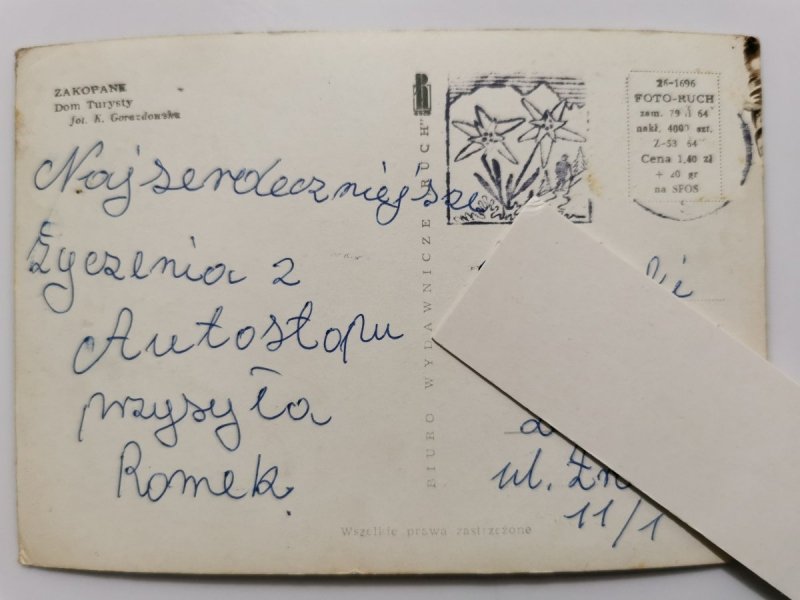 ZAKOPANE
Dom Turysty
fot. K. Gorazdowska
Najserdeczniejsze
życzenia z
Autostopu
przysyła
Romek.
BIURO WYDAWNICZE „RUCH”
26-1696
FOTO-RUCH
zam. 79 64
nakł. 4000 szt.
Z-53 64
Cena 1,40 zł
+ 20 gr
na SFOS
ul.
11/1
Wszelkie prawa zastrzeżone